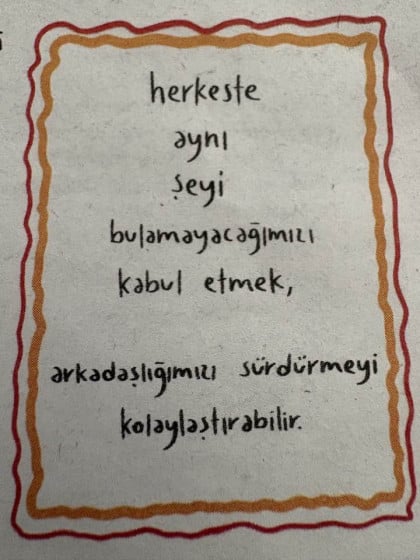 herkeste
aynı
şeyi
bulamayacağımızı
kabul etmek,
arkadaşlığımızı sürdürmeyi
kolaylaştırabilir.